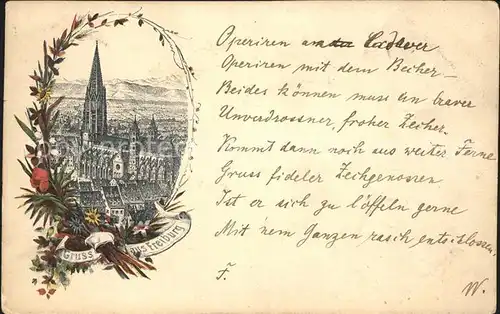 Operiren am Cadaver
Operiren mit dem Becher –
Beides können muss ein braver
Unverdrossner, froher Zecher.
Kommt dann noch aus weiter Ferne
Gruss fideler Zechgenossen
Ist er sich zu löffeln gerne
Mit 'nem Ganzen rasch entschlossen.
F. W.
Gruss aus Freiburg